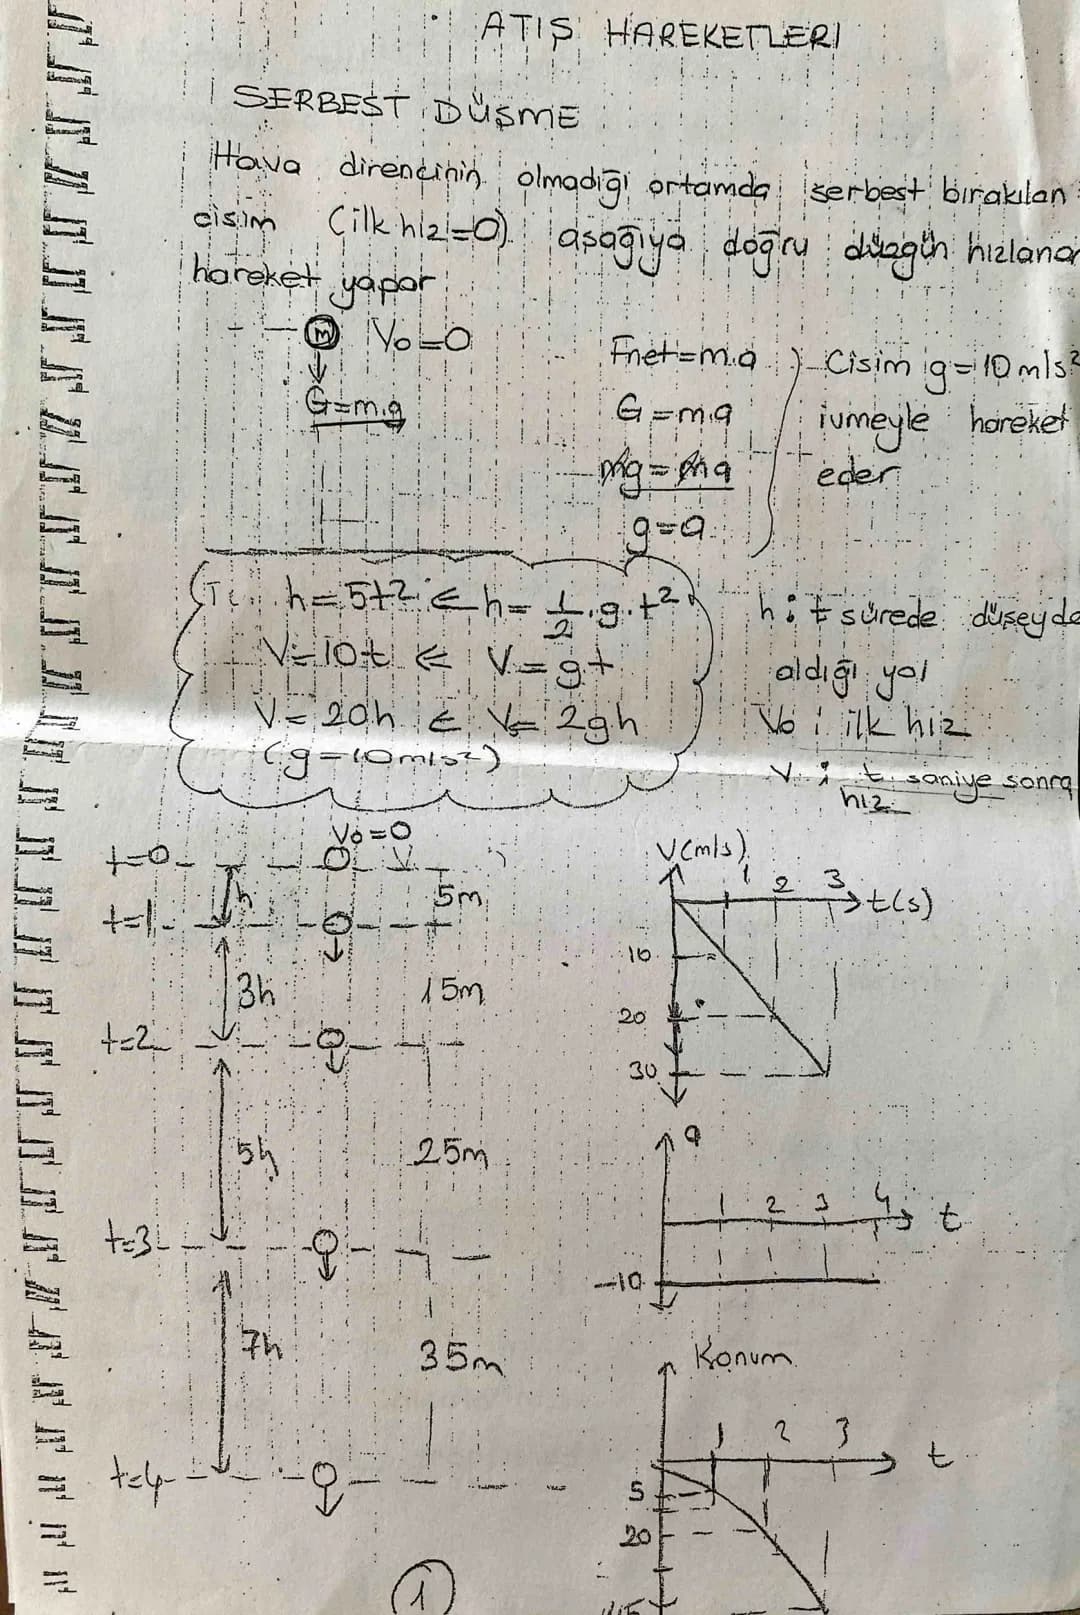 ATIŞ HAREKETLERİ
SERBEST DÜŞME
Hava direncinin olmadığı ortamda serbest bırakılan
cisim (ilk hız=0) aşağıya doğru düzgün hızlanan
hareket yapar
m V₀=0
G=m.g
Fnet=m.a
G=m.a
mg=ma
g=a
Cisim g=10m/s²
ivmeyle hareket
eder
h=5t² ⇐ h=1/2.g.t²
V=10t ⇐ V=gt
V=20h ⇐ V=2gh
(g=10m/s²)
h: t sürede düşeyde
aldığı yol
V₀: ilk hız
V: t saniye sonra
hız
V₀=0
t=0
h 5m
t=1
3h 15m
t=2
5h 25m
t=3
7h 35m
t=4
V(m/s)
1 2 3 t(s)
10
20
30
a
1 2 3 4 t
-10
Konum
1 2 3 t
5
20
45
1